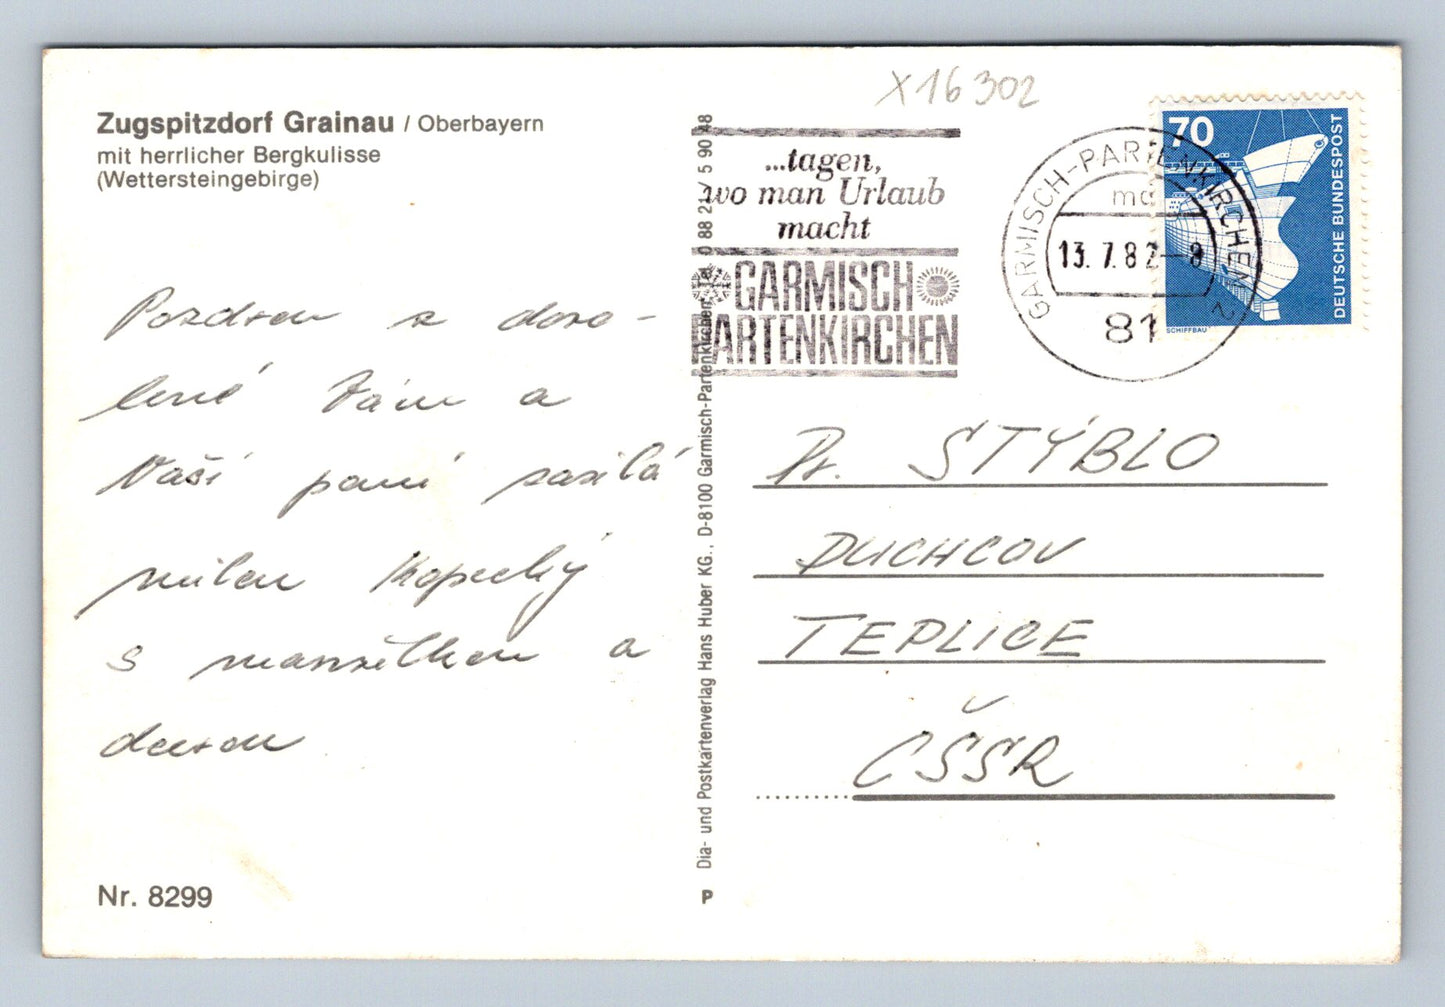 X16302
Zugspitzdorf Grainau / Oberbayern
mit herrlicher Bergkulisse
(Wettersteingebirge)
...tagen,
wo man Urlaub
macht
GARMISCH
PARTENKIRCHEN
GARMISCH-PARTENKIRCHEN 2
13.7.82-8
81
70
DEUTSCHE BUNDESPOST
SCHIFFBAU
Pozdrav z dovo-
lené Vám a
Vaší paní zasílá
Milan Kopecký
s manželkou a
Dia- und Postkartenverlag Hans Huber KG., D-8100 Garmisch-Partenkirchen, Tel. 0 88 21 / 5 90 48
P
STÝBLO
DUCHCOV
TEPLICE
ČSSR
Nr. 8299